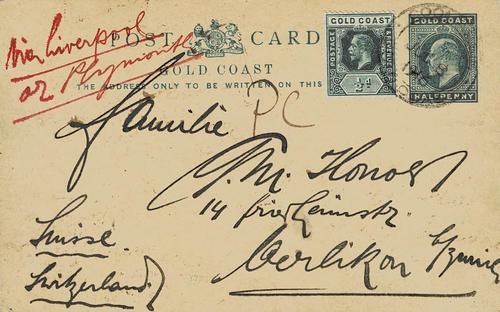 via Liverpool
or Plymouth
POST CARD
GOLD COAST
THE ADDRESS ONLY TO BE WRITTEN ON THIS
GOLD COAST
POSTAGE
& REVENUE
½d
GOLD COAST
HALFPENNY
PC
Familie
J. M.
14
Oerlikon
Suisse.
Switzerland